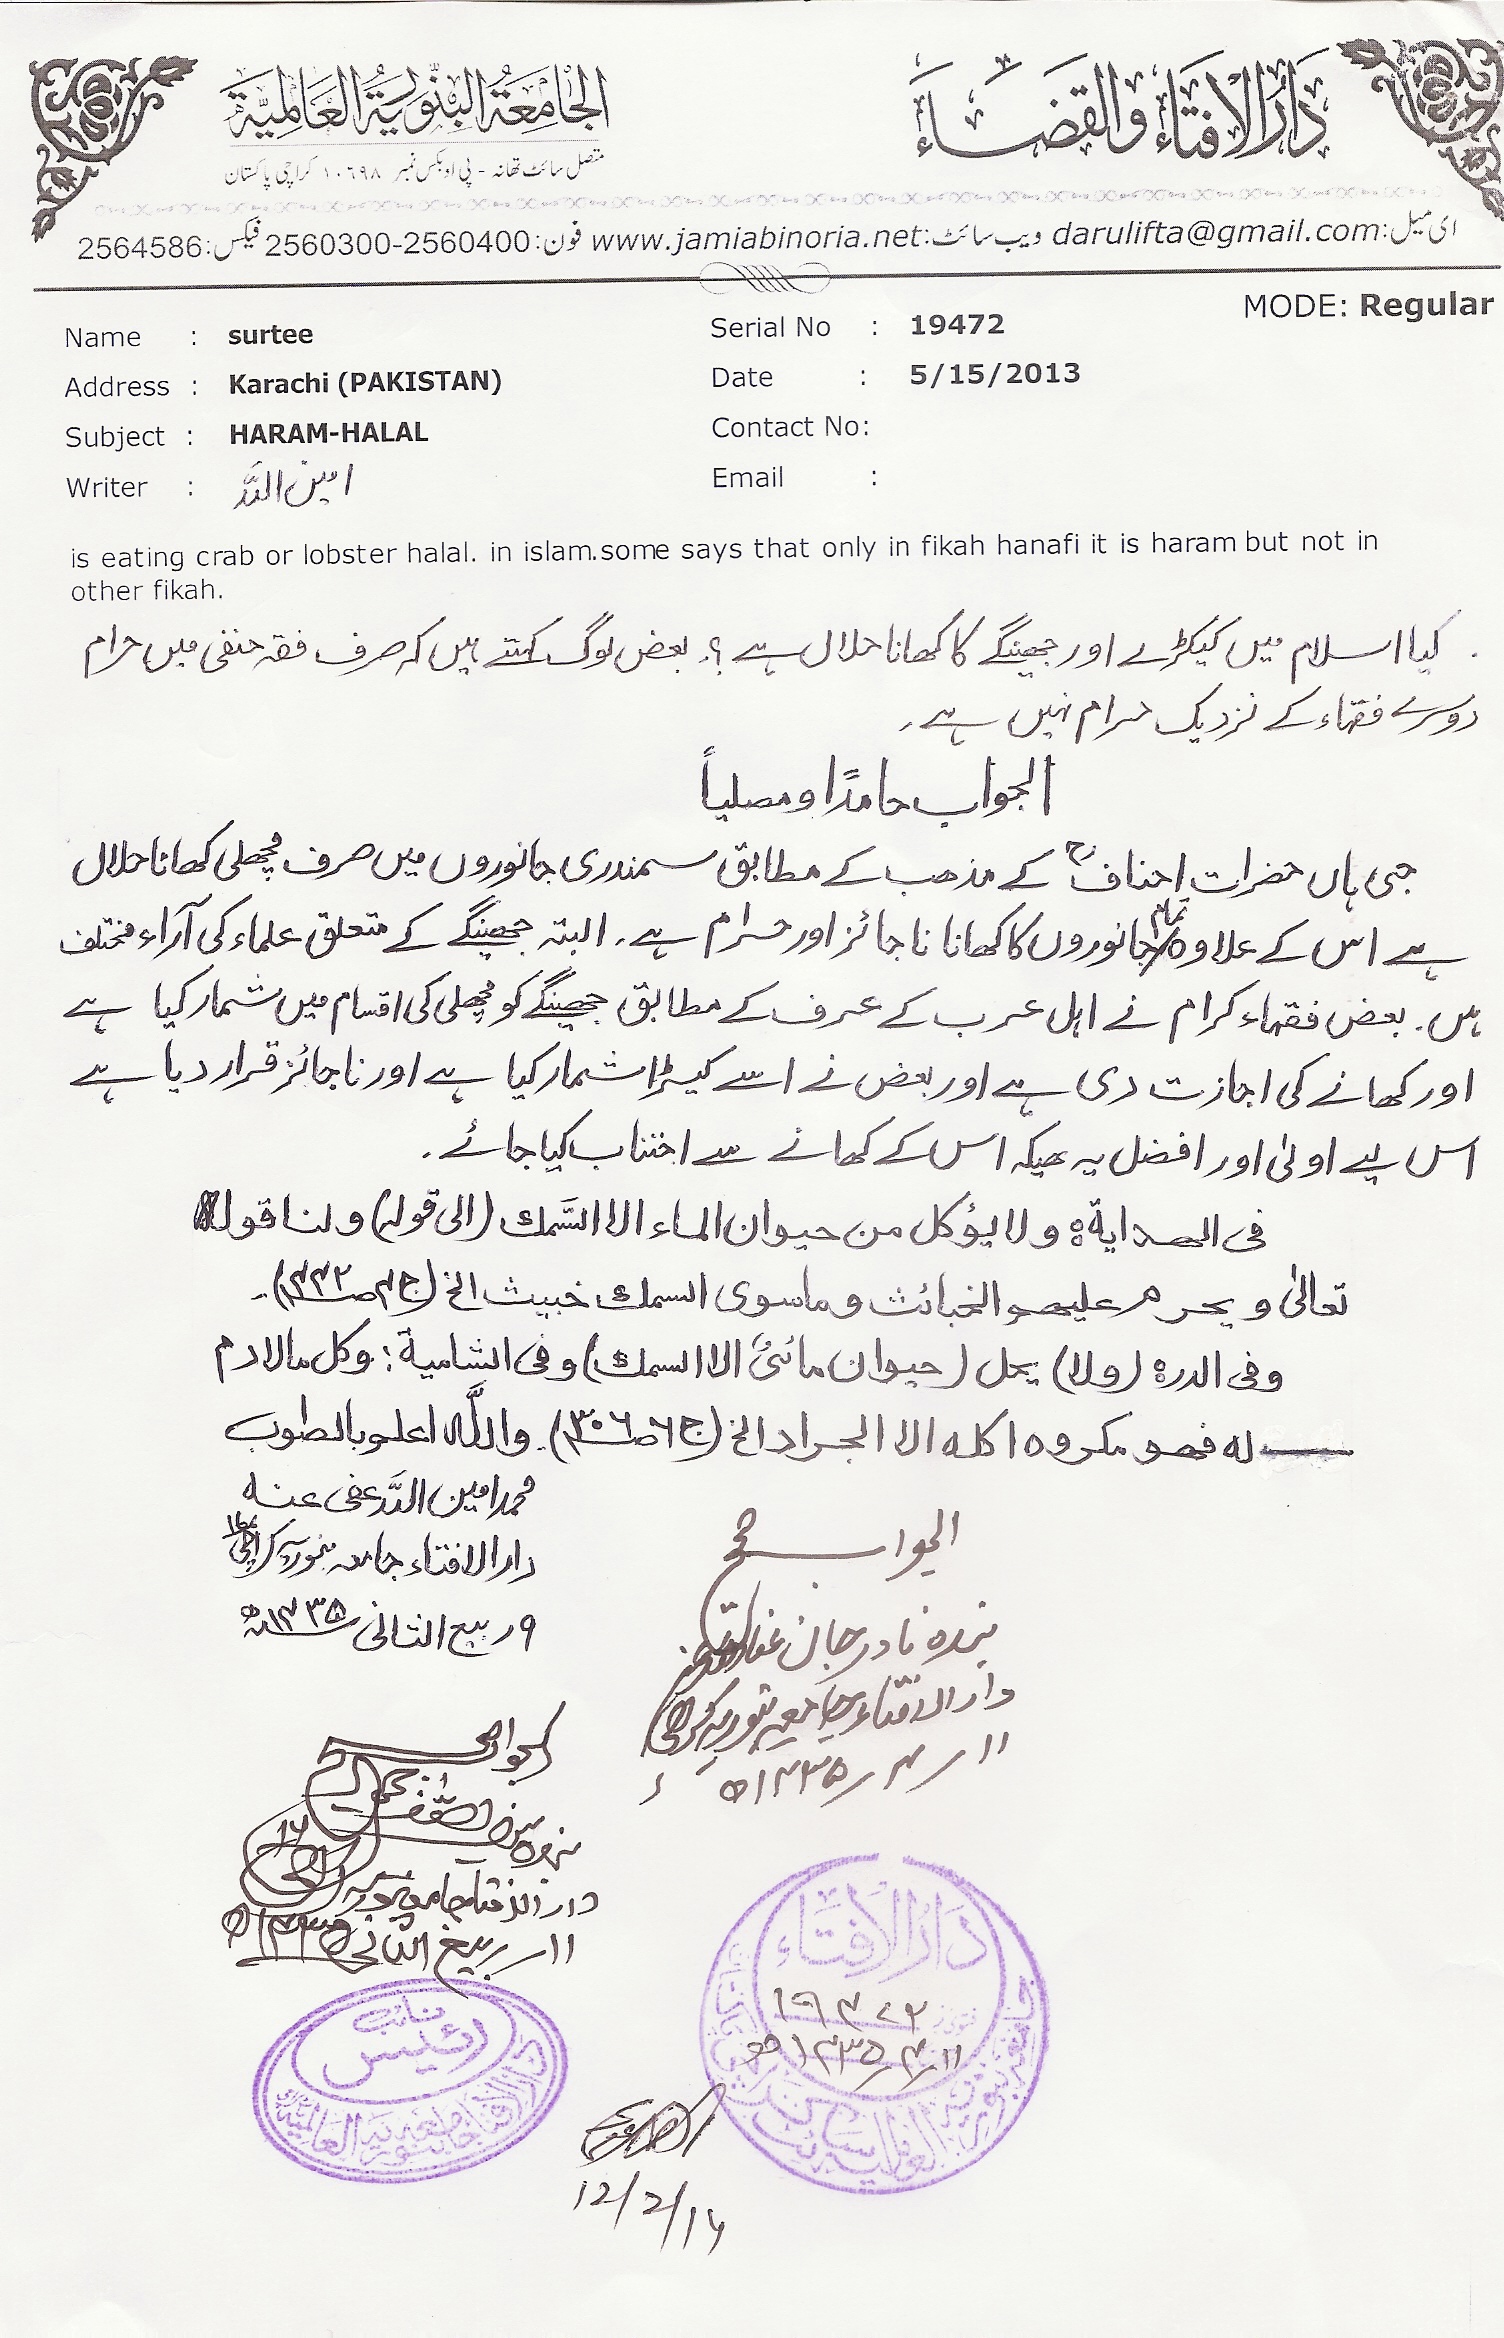 دَارُ الْاِفْتَاء وَالْقَضَاء
الجَامِعَةُ البِنّورِيَةُ العَالَمِيَّة
متصل سائٹ تھانہ - پی او بکس نمبر ۱۰۶۹۸ کراچی پاکستان
ای میل:darulifta@gmail.com ویب سائٹ:www.jamiabinoria.net فون:2560300-2560400 فیکس:2564586
MODE: Regular
Name : surtee
Serial No : 19472
Address : Karachi (PAKISTAN)
Date : 5/15/2013
Subject : HARAM-HALAL
Contact No:
Writer : امین اللہ
Email :
is eating crab or lobster halal. in islam.some says that only in fikah hanafi it is haram but not in
other fikah.
کیا اسلام میں کیکڑے اور جھینگے کا کھانا حلال ہے ؟ بعض لوگ کہتے ہیں کہ صرف فقہ حنفی میں حرام
دوسرے فقہاء کے نزدیک حرام نہیں ہے۔
الجواب حامدًا ومصلیاً
جی ہاں حضرات احنافؒ کے مذھب کے مطابق سمندری جانوروں میں صرف مچھلی کھانا حلال
ہے اس کے علاوہ تمام جانوروں کا کھانا ناجائز اور حرام ہے۔ البتہ جھینگے کے متعلق علماء کی آراء مختلف
ہیں۔ بعض فقہاء کرام نے اہل عرب کے عرف کے مطابق جھینگے کو مچھلی کی اقسام میں شمار کیا ہے
اور کھانے کی اجازت دی ہے اور بعض نے اسے کیڑا شمار کیا ہے اور ناجائز قرار دیا ہے
اس لیے اولیٰ اور افضل یہ ھیکہ اس کے کھانے سے اجتناب کیا جائے۔
فی الھدایة: ولا یؤکل من حیوان الماء الا السَّمك (الی قوله) ولنا قوله
تعالیٰ ویحرم علیھم الخبائث وما سوی السمك خبیث الخ (ج۴ ص۴۴۲)۔
وفی الدرة (ولا) یحل (حیوان مائیٌ الا السمك) وفی الشامیة: وکل مالا دم
له فھو مکروہ اکله الا الجراد الخ (ج۶ ص۳۰۶)۔ واللہ اعلم بالصّوب
محمد امین اللہ عفی عنہ
دار الافتاء جامعہ بنوریہ کراچی ۱۶
۹ ربیع الثانی ۱۴۳۵ھ
الجواب صحیح
بندہ نادر جان
دار الافتاء جامعہ بنوریہ کراچی
۱۱ / ۴ / ۱۴۳۵ھ
الجواب صحیح
بندہ سیف اللہ
دار الافتاء جامعہ بنوریہ کراچی ۱۶
۱۱ ربیع الثانی ۱۴۳۵ھ
دَارُ الْاِفْتَاء
۱۹۴۷۲
۱۱ / ۴ / ۱۴۳۵ھ
نائب
رئیس
12/2/14